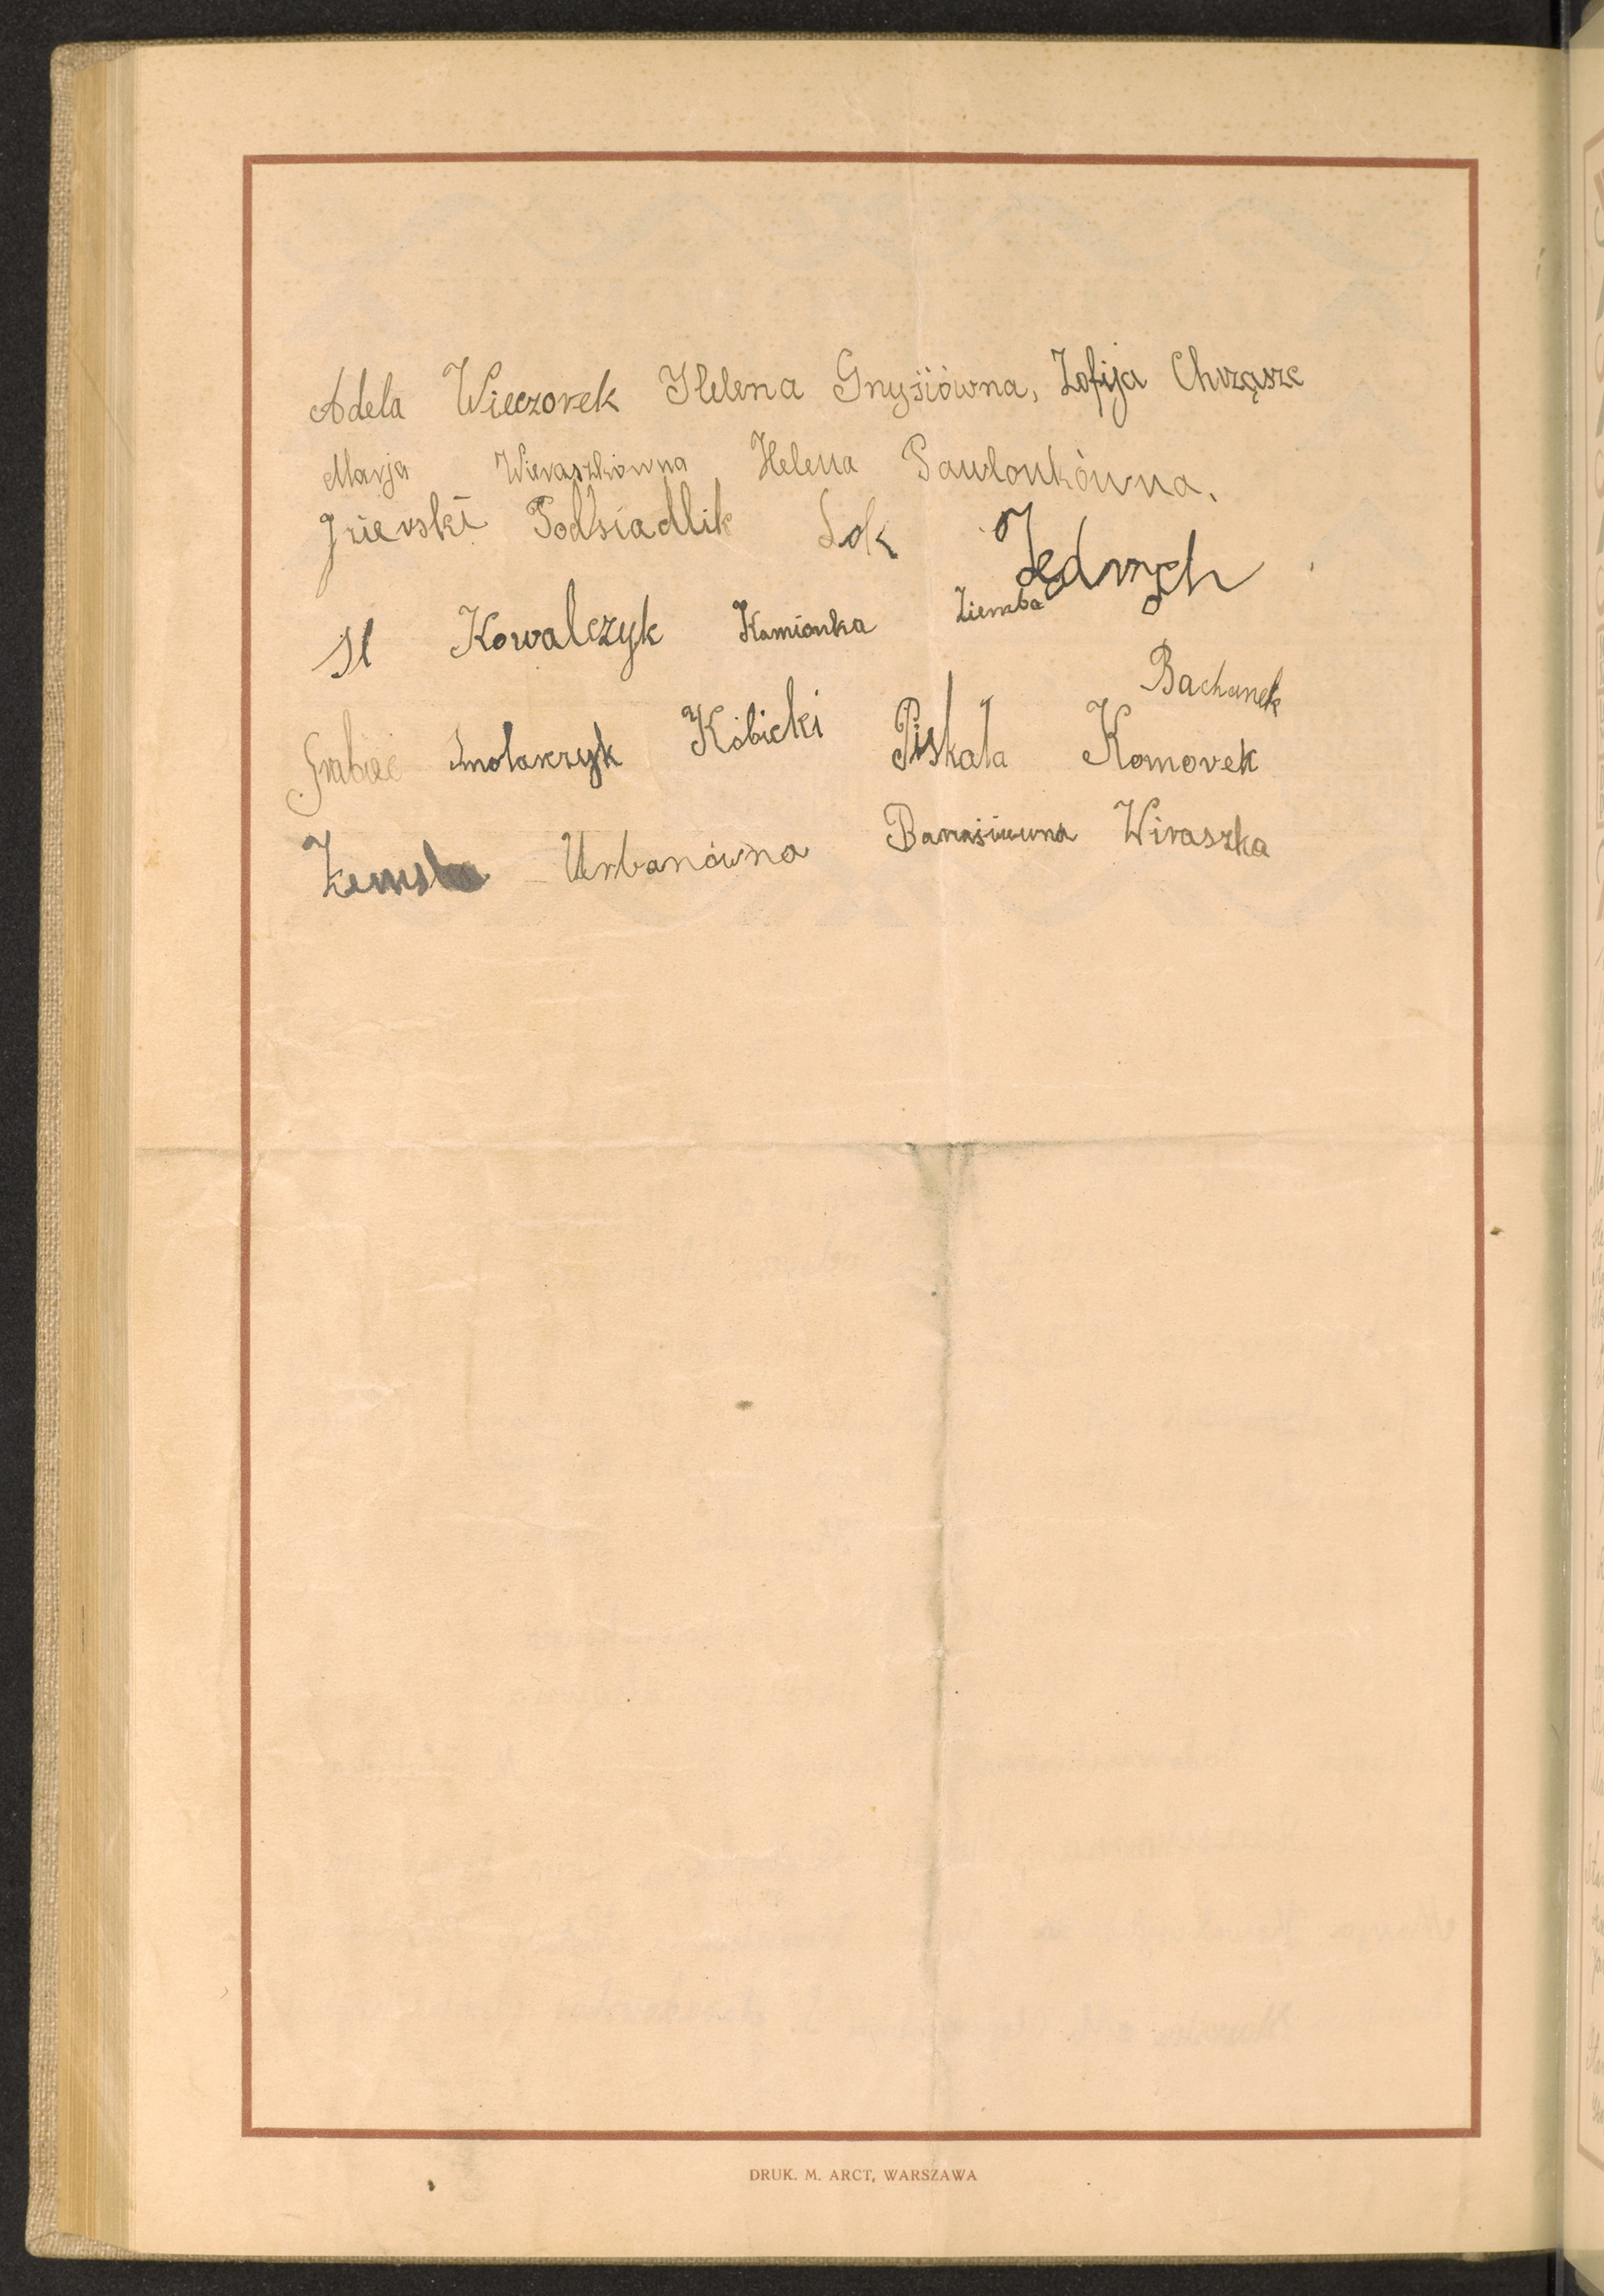 Adela Wieczorek Helena Gnysiówna, Zofija Chrząszc
Marja Wieraszkówna Helena Pawlonkówna.
Podsiadlik Sok Jędrych
St Kowalczyk Kamionka Ziemba
Bachanek
Grabiec Smolarczyk Kobicki Piskala Komorek
Urbanówna Banasiówna Wiraszka
DRUK. M. ARCT, WARSZAWA